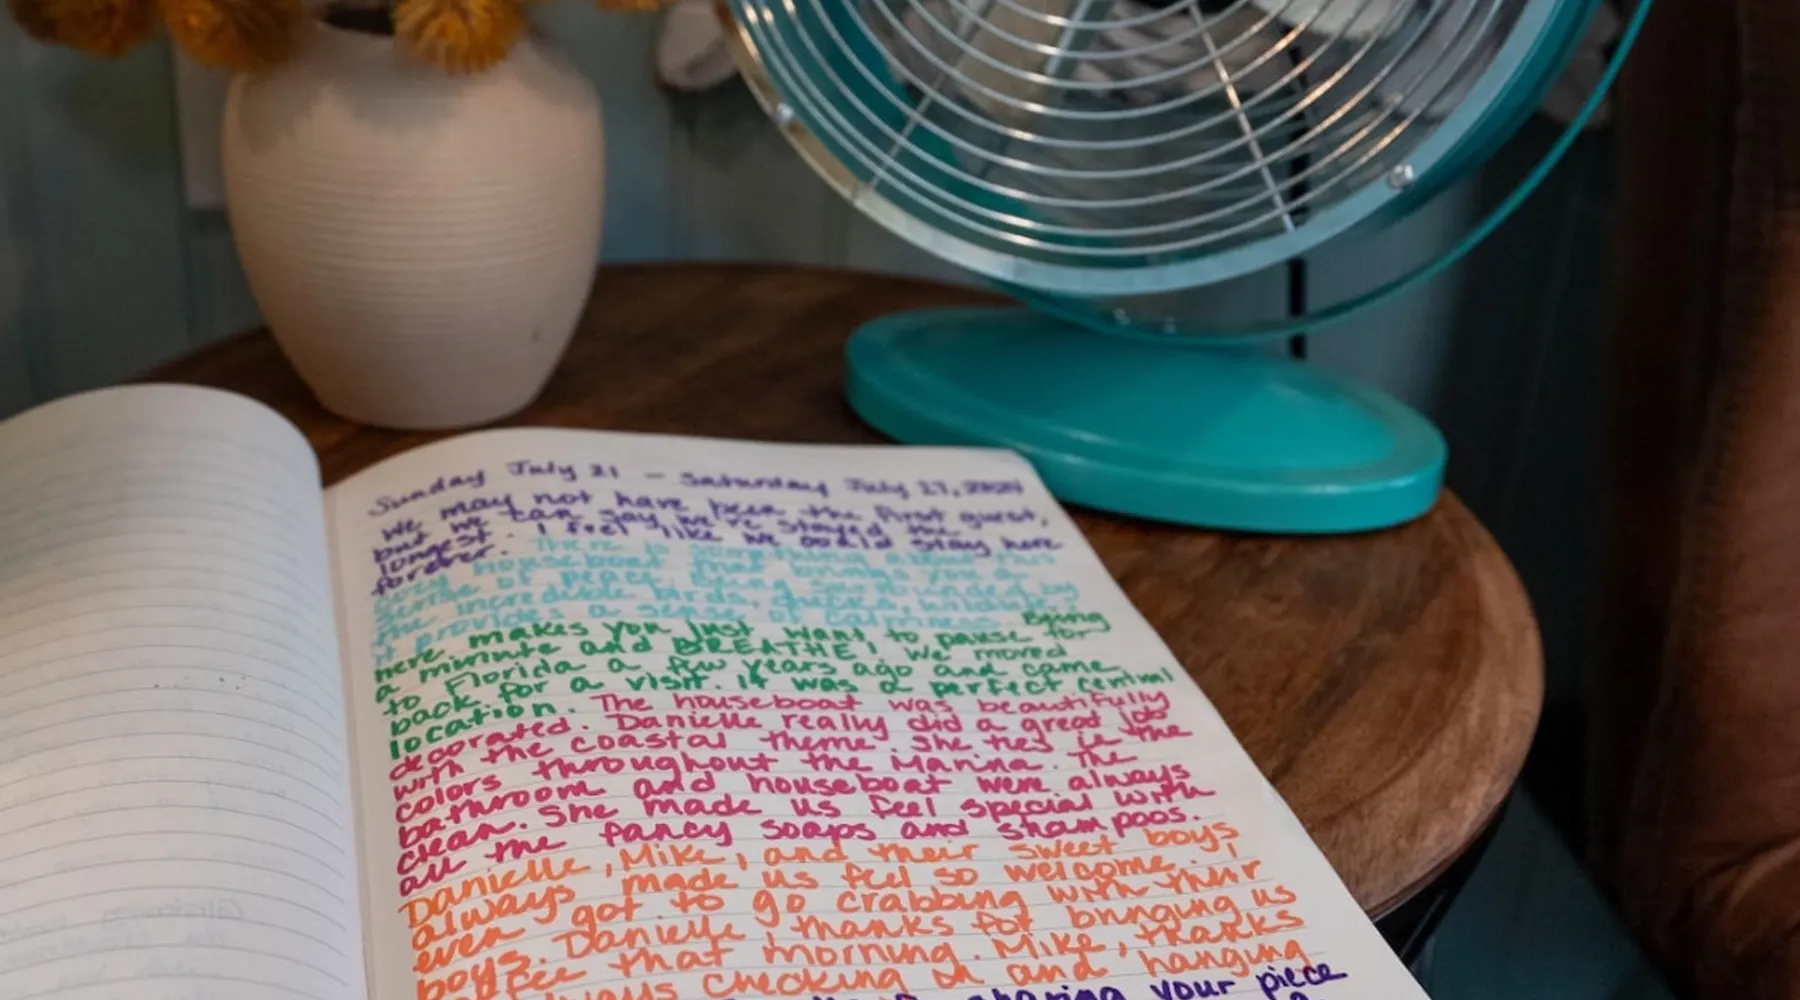 Sunday July 21 - Saturday July 27, 2024
We may not have been the first guest,
but we can say we've stayed the
longest. I feel like we could stay here
forever. There is something about this
houseboat that brings you a
sense of peace. Being surrounded by
the incredible birds, ducks, wildlife,
it provides a sense of calmness. Being
here makes you just want to pause for
a minute and BREATHE! We moved
to Florida a few years ago and came
back for a visit. It was a perfect central
location. The houseboat was beautifully
decorated. Danielle really did a great job
with the coastal theme. She ties in the
colors throughout the Marina. The
bathroom and houseboat were always
clean. She made us feel special with
all the fancy soaps and shampoos.
Danielle, Mike, and their sweet boys
always made us feel so welcome. I
even got to go crabbing with their
boys. Danielle thanks for bringing us
coffee that morning. Mike, thanks
always checking in and hanging
sharing your piece